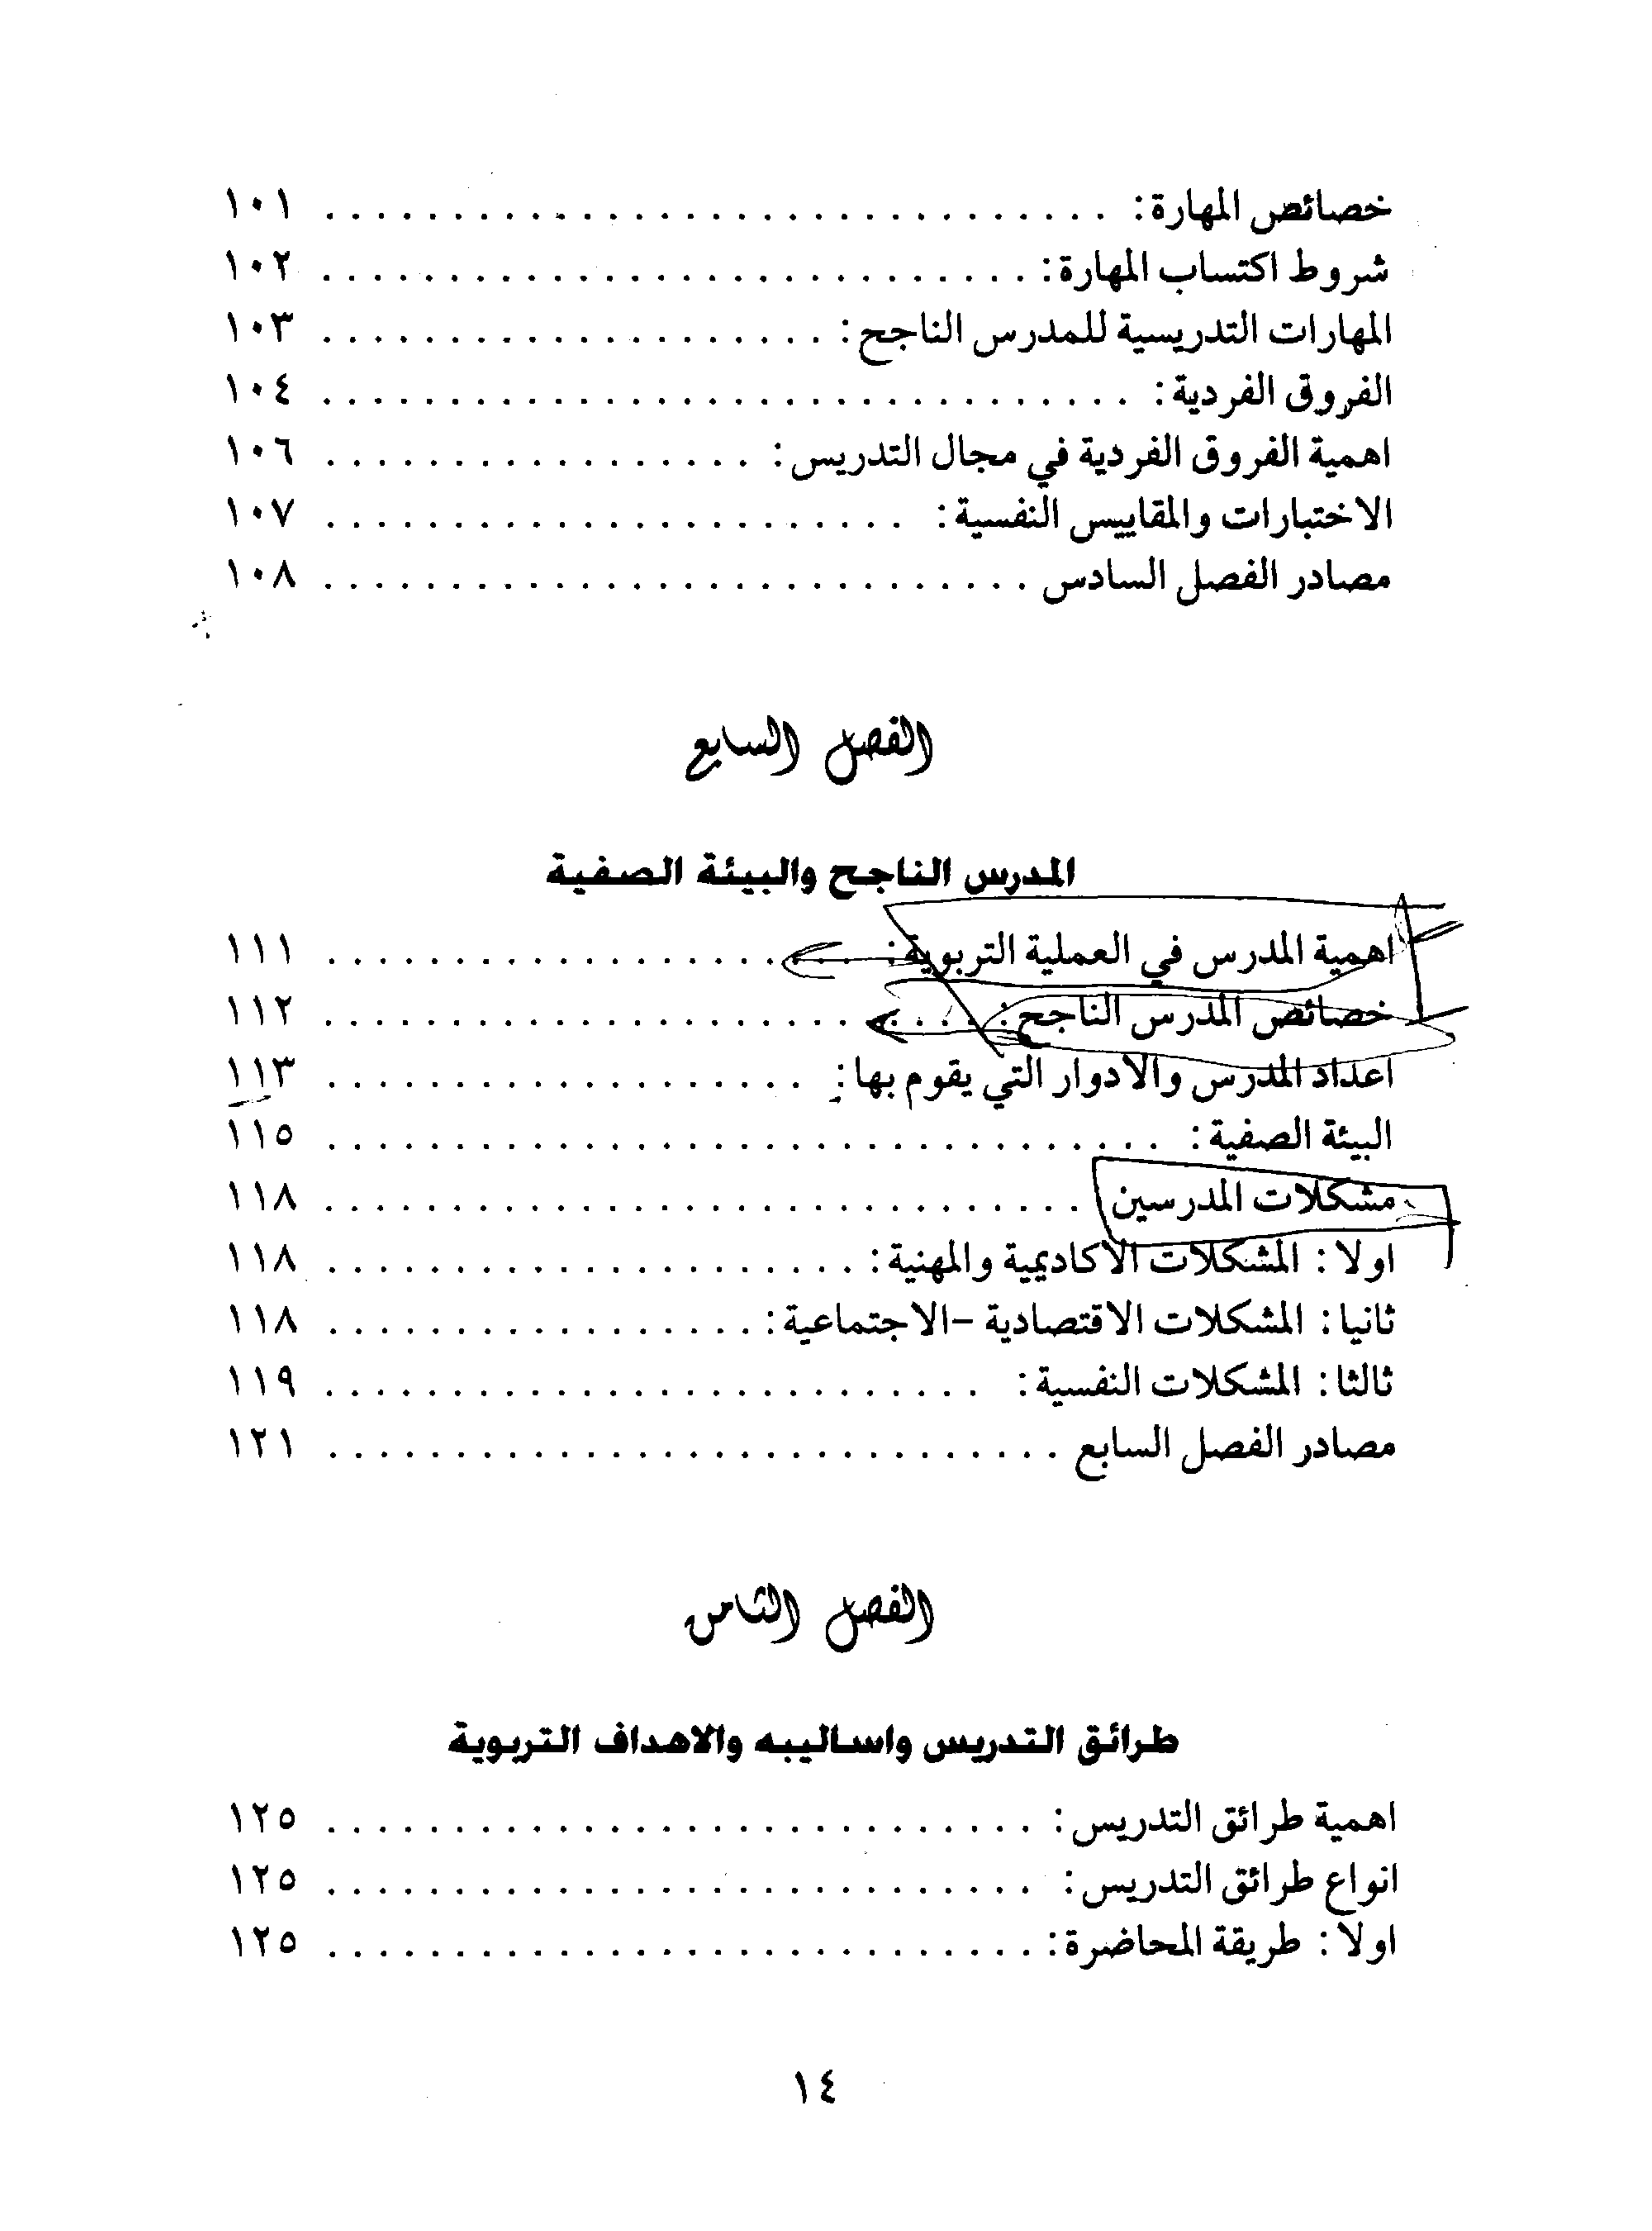 خصائص المهارة: . . . . . . . . . . . . . . . . . . . . . . . . . . . . . . . ١٠١
شروط اكتساب المهارة: . . . . . . . . . . . . . . . . . . . . . . . . . . . . ١٠٢
المهارات التدريسية للمدرس الناجح: . . . . . . . . . . . . . . . . . . . . ١٠٣
الفروق الفردية: . . . . . . . . . . . . . . . . . . . . . . . . . . . . . . . . ١٠٤
اهمية الفروق الفردية في مجال التدريس: . . . . . . . . . . . . . . . . . ١٠٦
الاختبارات والمقاييس النفسية: . . . . . . . . . . . . . . . . . . . . . . . ١٠٧
مصادر الفصل السادس . . . . . . . . . . . . . . . . . . . . . . . . . . . . ١٠٨
الفصل السابع
المدرس الناجح والبيئة الصفية
اهمية المدرس في العملية التربوية: . . . . . . . . . . . . . . . . . . . . . . ١١١
خصائص المدرس الناجح: . . . . . . . . . . . . . . . . . . . . . . . . . . ١١٢
اعداد المدرس والادوار التي يقوم بها: . . . . . . . . . . . . . . . . . . . ١١٣
البيئة الصفية: . . . . . . . . . . . . . . . . . . . . . . . . . . . . . . . . . ١١٥
مشكلات المدرسين . . . . . . . . . . . . . . . . . . . . . . . . . . . . . . ١١٨
اولا: المشكلات الاكاديمية والمهنية: . . . . . . . . . . . . . . . . . . . . . ١١٨
ثانيا: المشكلات الاقتصادية -الاجتماعية: . . . . . . . . . . . . . . . . . ١١٨
ثالثا: المشكلات النفسية: . . . . . . . . . . . . . . . . . . . . . . . . . . ١١٩
مصادر الفصل السابع . . . . . . . . . . . . . . . . . . . . . . . . . . . . . ١٢١
الفصل الثامن
طرائق التدريس واساليبه والاهداف التربوية
اهمية طرائق التدريس: . . . . . . . . . . . . . . . . . . . . . . . . . . . . ١٢٥
انواع طرائق التدريس: . . . . . . . . . . . . . . . . . . . . . . . . . . . . ١٢٥
اولا: طريقة المحاضرة: . . . . . . . . . . . . . . . . . . . . . . . . . . . . ١٢٥
١٤